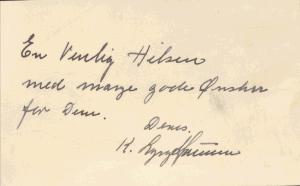 En Venlig Hilsen
med mange gode Ønsker
for Dem.
Deres
K.